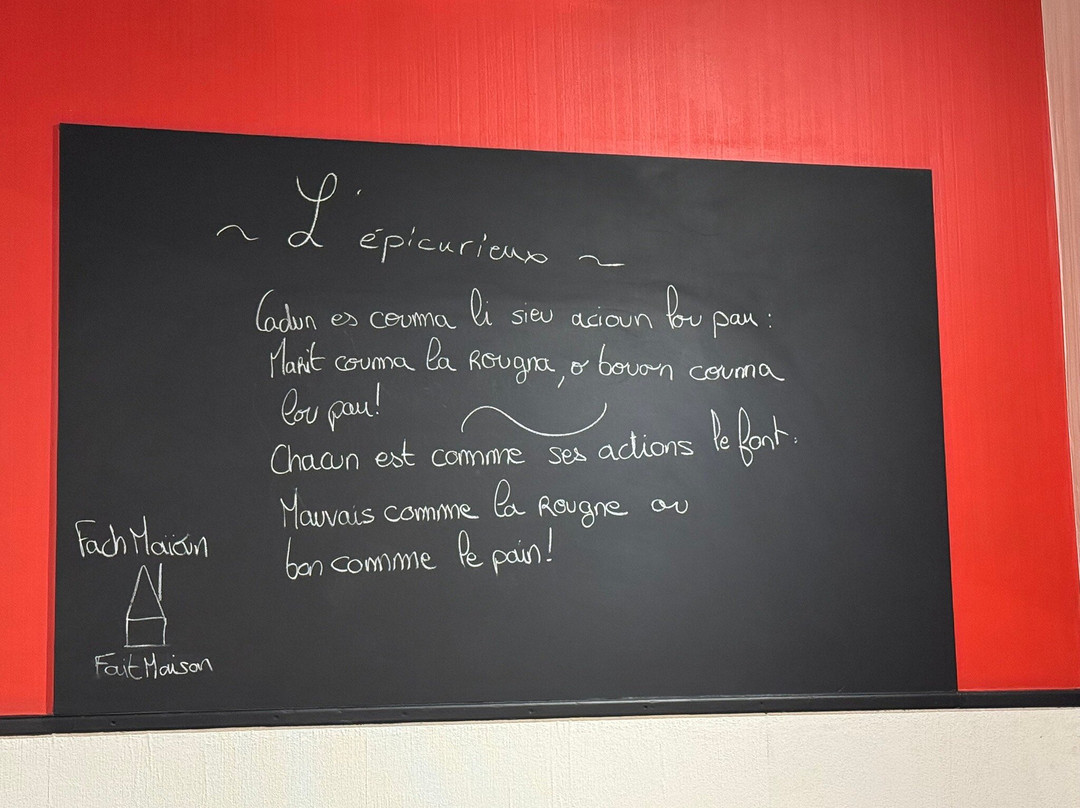 ~ L'épicurieux ~
Cadun es couma li sieu acioun lou pau :
Marit couma la Rougna, o bouon couma
lou pau!
Chacun est comme ses actions le font :
Mauvais comme la Rougne ou
bon comme le pain!
Fach Maioun
Fait Maison